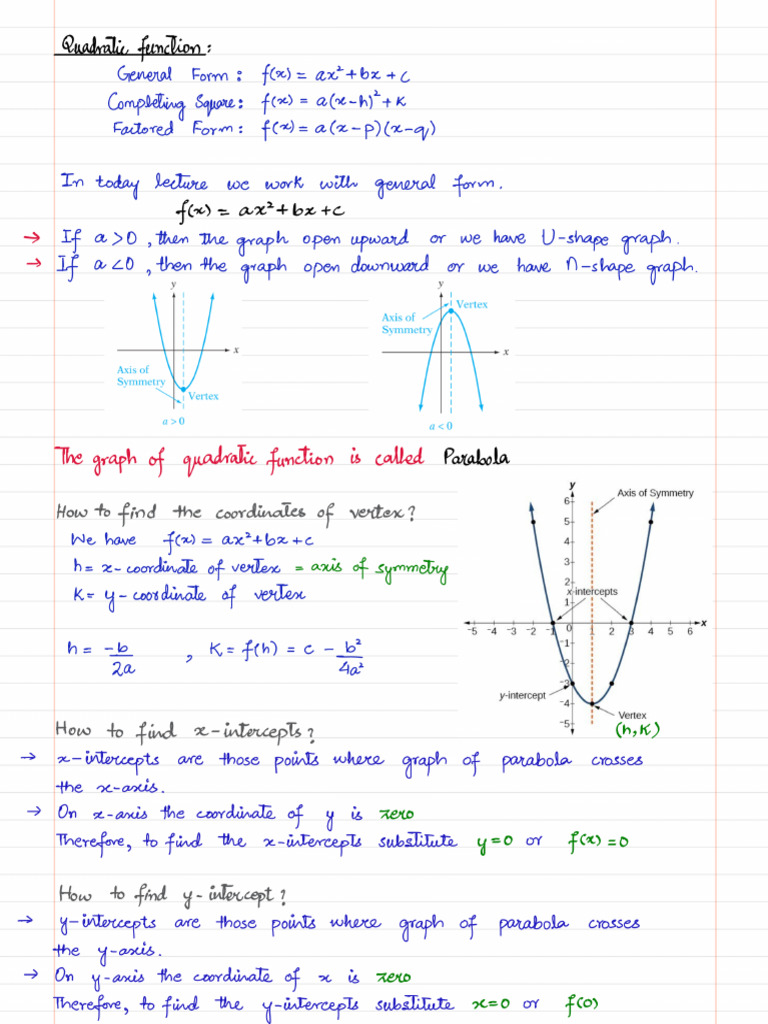 Quadratic function:
General Form: f(x) = ax² + bx + c
Completing Square: f(x) = a(x-h)² + K
Factored Form: f(x) = a(x-p)(x-q)
In today lecture we work with general form.
f(x) = ax² + bx + c
→ If a>0, then the graph open upward or we have U-shape graph.
→ If a<0, then the graph open downward or we have ∩-shape graph.
y
x
Axis of
Symmetry
Vertex
a > 0
y
Vertex
Axis of
Symmetry
x
a < 0
The graph of quadratic function is called Parabola
How to find the coordinates of vertex?
We have f(x) = ax² + bx + c
h = x-coordinate of vertex = axis of symmetry
K = y-coordinate of vertex
h = -b/2a , K = f(h) = c - b²/4a²
y
Axis of Symmetry
6
5
4
3
2
x-intercepts
1
-5 -4 -3 -2 -1 0 1 2 3 4 5 6 x
-1
-2
-3
y-intercept
-4
Vertex
-5
(h,K)
How to find x-intercepts?
→ x-intercepts are those points where graph of parabola crosses
the x-axis.
→ On x-axis the coordinate of y is zero
Therefore, to find the x-intercepts substitute y=0 or f(x)=0
How to find y-intercept?
→ y-intercepts are those points where graph of parabola crosses
the y-axis.
→ On y-axis the coordinate of x is zero
Therefore, to find the y-intercepts substitute x=0 or f(0)